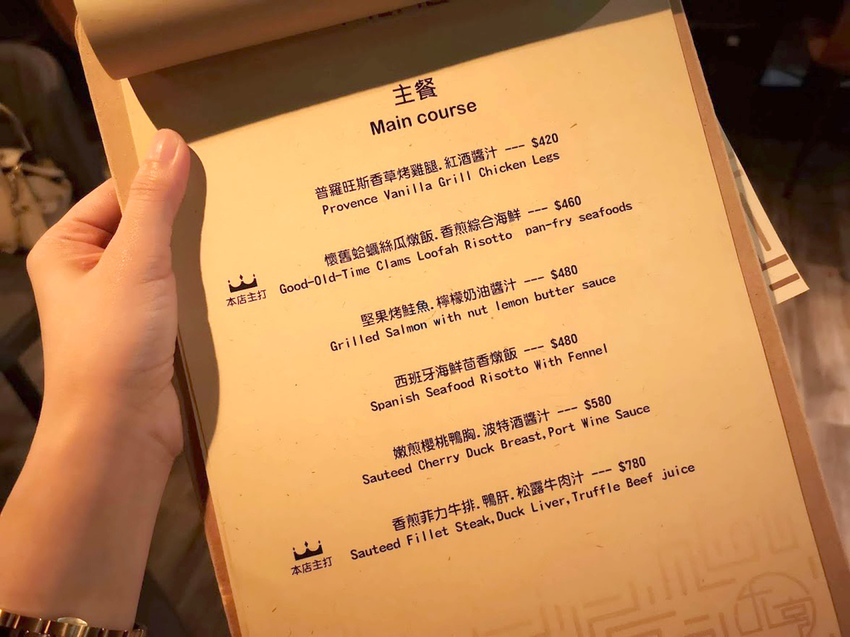 主餐
Main course
普羅旺斯香草烤雞腿.紅酒醬汁 --- $420
Provence Vanilla Grill Chicken Legs
懷舊蛤蠣絲瓜燉飯.香煎綜合海鮮 --- $460
本店主打
Good-Old-Time Clams Loofah Risotto pan-fry seafoods
堅果烤鮭魚.檸檬奶油醬汁 --- $480
Grilled Salmon with nut lemon butter sauce
西班牙海鮮茴香燉飯 --- $480
Spanish Seafood Risotto With Fennel
嫩煎櫻桃鴨胸.波特酒醬汁 --- $580
Sauteed Cherry Duck Breast,Port Wine Sauce
香煎菲力牛排.鴨肝.松露牛肉汁 --- $780
本店主打
Sauteed Fillet Steak,Duck Liver,Truffle Beef juice